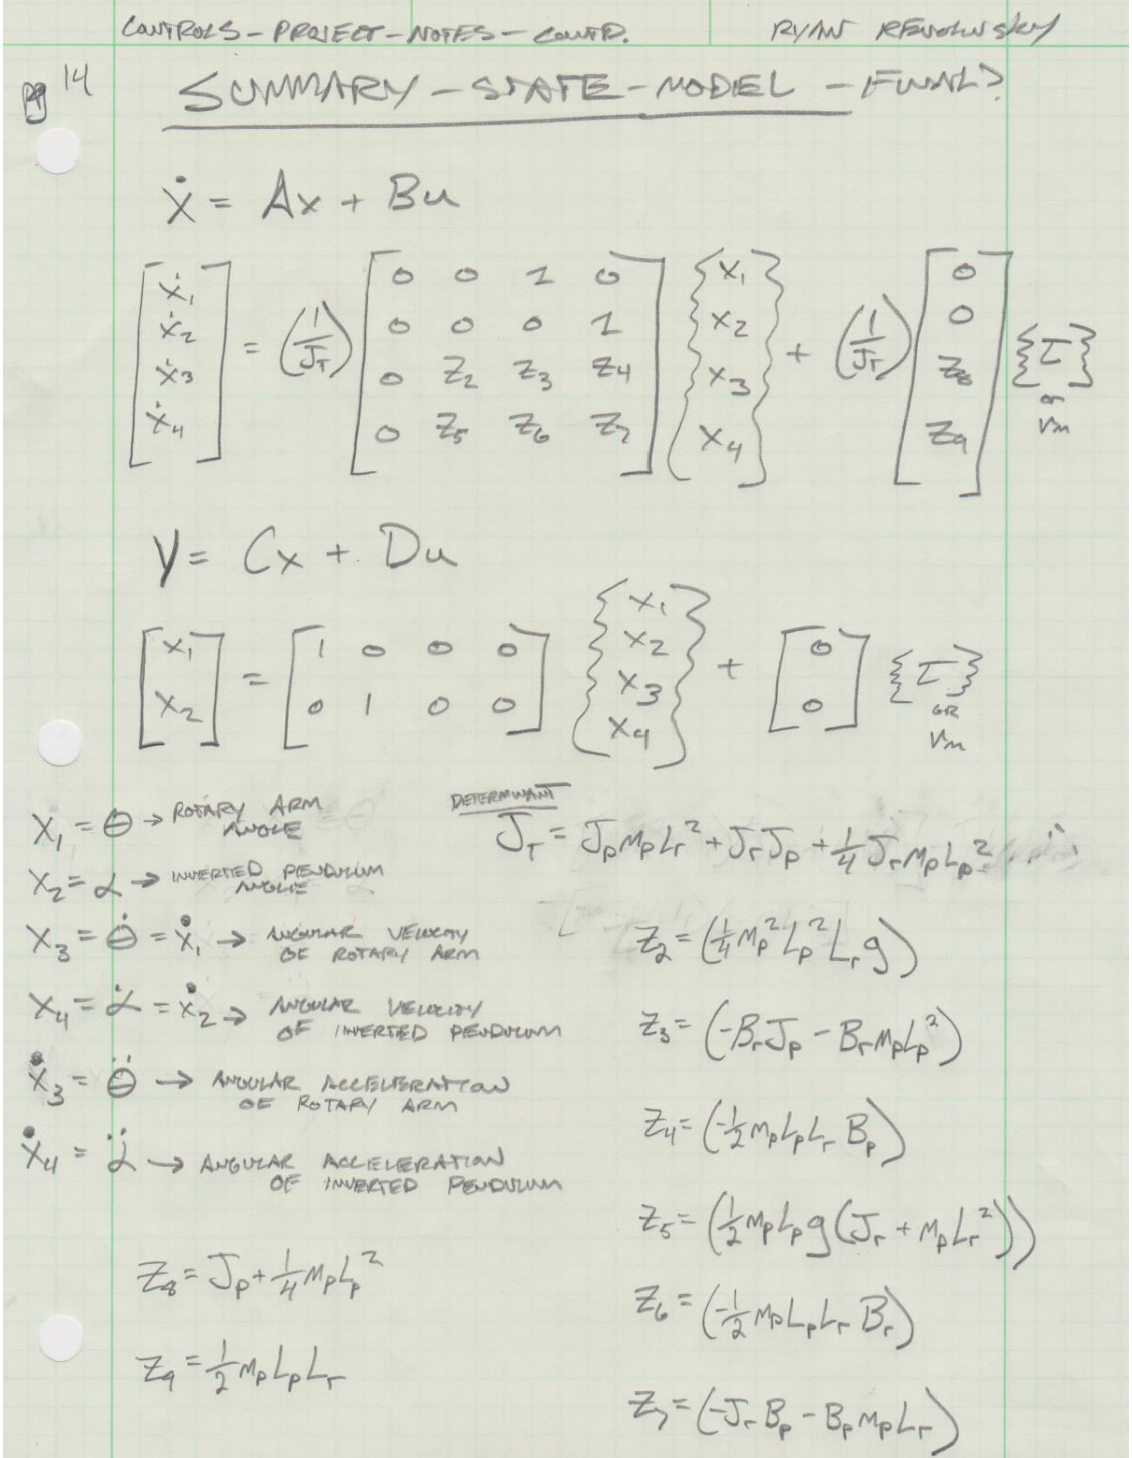 CONTROLS - PROJECT - NOTES - CONT'D.
Pg 14
SUMMARY - STATE - MODEL - FINAL?
ẋ = Ax + Bu
[ẋ₁ ẋ₂ ẋ₃ ẋ₄] = (1/J_T) [0 0 1 0; 0 0 0 1; 0 Z₂ Z₃ Z₄; 0 Z₅ Z₆ Z₇] {x₁ x₂ x₃ x₄} + (1/J_T) [0 0 Z₈ Z₉] {τ} or Vm
y = Cx + Du
[x₁ x₂] = [1 0 0 0; 0 1 0 0] {x₁ x₂ x₃ x₄} + [0 0] {τ} OR Vm
x₁ = θ → ROTARY ARM
ANGLE
x₂ = α → INVERTED PENDULUM
ANGLE
x₃ = θ̇ = ẋ₁ → ANGULAR VELOCITY
OF ROTARY ARM
x₄ = α̇ = ẋ₂ → ANGULAR VELOCITY
OF INVERTED PENDULUM
ẋ₃ = θ̈ → ANGULAR ACCELERATION
OF ROTARY ARM
ẋ₄ = α̈ → ANGULAR ACCELERATION
OF INVERTED PENDULUM
Z₈ = J_p + ¼ M_p L_p²
Z₉ = ½ M_p L_p L_r
DETERMINANT
J_T = J_p M_p L_r² + J_r J_p + ¼ J_r M_p L_p²
Z₂ = (¼ M_p² L_p² L_r g)
Z₃ = (-B_r J_p - B_r M_p L_p²)
Z₄ = (-½ M_p L_p L_r B_p)
Z₅ = (½ M_p L_p g (J_r + M_p L_r²))
Z₆ = (-½ M_p L_p L_r B_r)
Z₇ = (-J_r B_p - B_p M_p L_r)